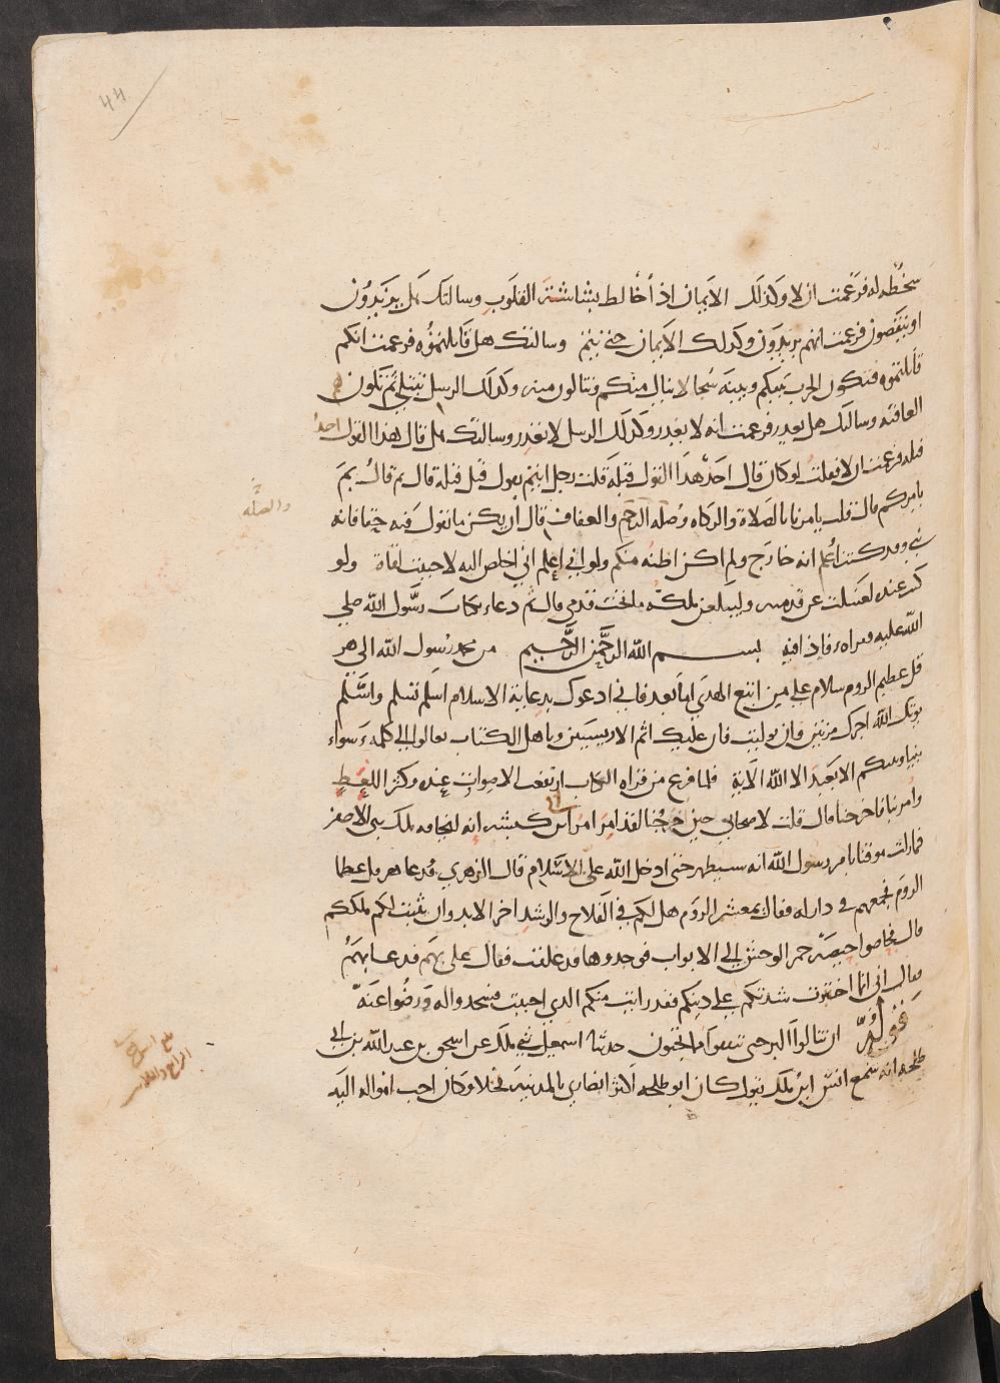 ٤٤
سخطه له فزعمت ان لا وكذلك الايمان اذ أخالط بشاشته القلوب وسالتك هل يزيدون
او ينقصون فزعمت انهم يزيدون وكذلك الايمان حتى يتم وسالتك هل قاتلتموه فزعمت انكم
قاتلتموه فتكون الحرب بينكم وبينه سجالا ينال منكم وتنالون منه وكذلك الرسل تبتلى ثم تكون
العاقبه وسالتك هل يغدر فزعمت انه لا يغدر وكذلك الرسل لا تغدر وسالتك هل قال هذا القول احد
قبله فزعمت ان لا فقلت لو كان قال احد هذا القول قبله قلت رجل ايتم بقول قيل قبله قال ثم قال بم
يامركم قال قلت يامرنا بالصلاة والزكاه وصله الرحم والعفاف قال ان يكن ما تقول فيه حقا فانه
والصله
نبي وقد كنت اعلم انه خارج ولم اكن اظنه منكم ولو اني اعلم اني اخلص اليه لاحببت لقاه ولو
كنت عنده لغسلت عن قدميه وليبلغن ملكه ما تحت قدمي قال ثم دعاء بكتاب رسول الله صلي
الله عليه فقراه فاذا فيه بسم الله الرحمن الرحيم من محمد رسول الله الى هر
قل عظيم الروم سلام على من اتبع الهدي اما بعد فاني ادعوك بدعاية الاسلام اسلم تسلم واسلم
يوتك الله اجرك مرتين وان توليت فان عليك اثم الاريسيين وياهل الكتاب تعالوا الى كلمة سواء
بيننا وبينكم الا نعبد الا الله الاية فلما فرغ من قراه الكتاب ارتفعت الاصوات عنده وكثر اللغط
وامر بنا فاخرجنا قال قلت لاصحابي حين خرجنا لقد امر امر ابن ابى كبشه انه ليخافه ملك بني الاصفر
فما زلت موقنا بامر رسول الله انه سيظهر حتى ادخل الله علي الاسلام قال الزهري فدعا هرقل عظما
الروم فجمعهم في دار له فقال يمعشر الروم هل لكم في الفلاح والرشد اخر الابد وان يثبت لكم ملككم
قال فحاصوا حيصة حمر الوحش الى الابواب فوجدوها قد غلقت فقال علي بهم فدعا بهم
فقال اني انما اختبرت شدتكم على دينكم فقد رايت منكم الذي احببت فسجدوا له ورضوا عنه
قوله ان تنالوا البر حتى تنفقوا مما تحبون حدثنا اسمعيل ثني ملك عن اسحق بن عبد الله بن ابي
طلحه انه سمع انس ابن ملك يقول كان ابو طلحه اكثر انصاري بالمدينة نخلا وكان احب امواله اليه